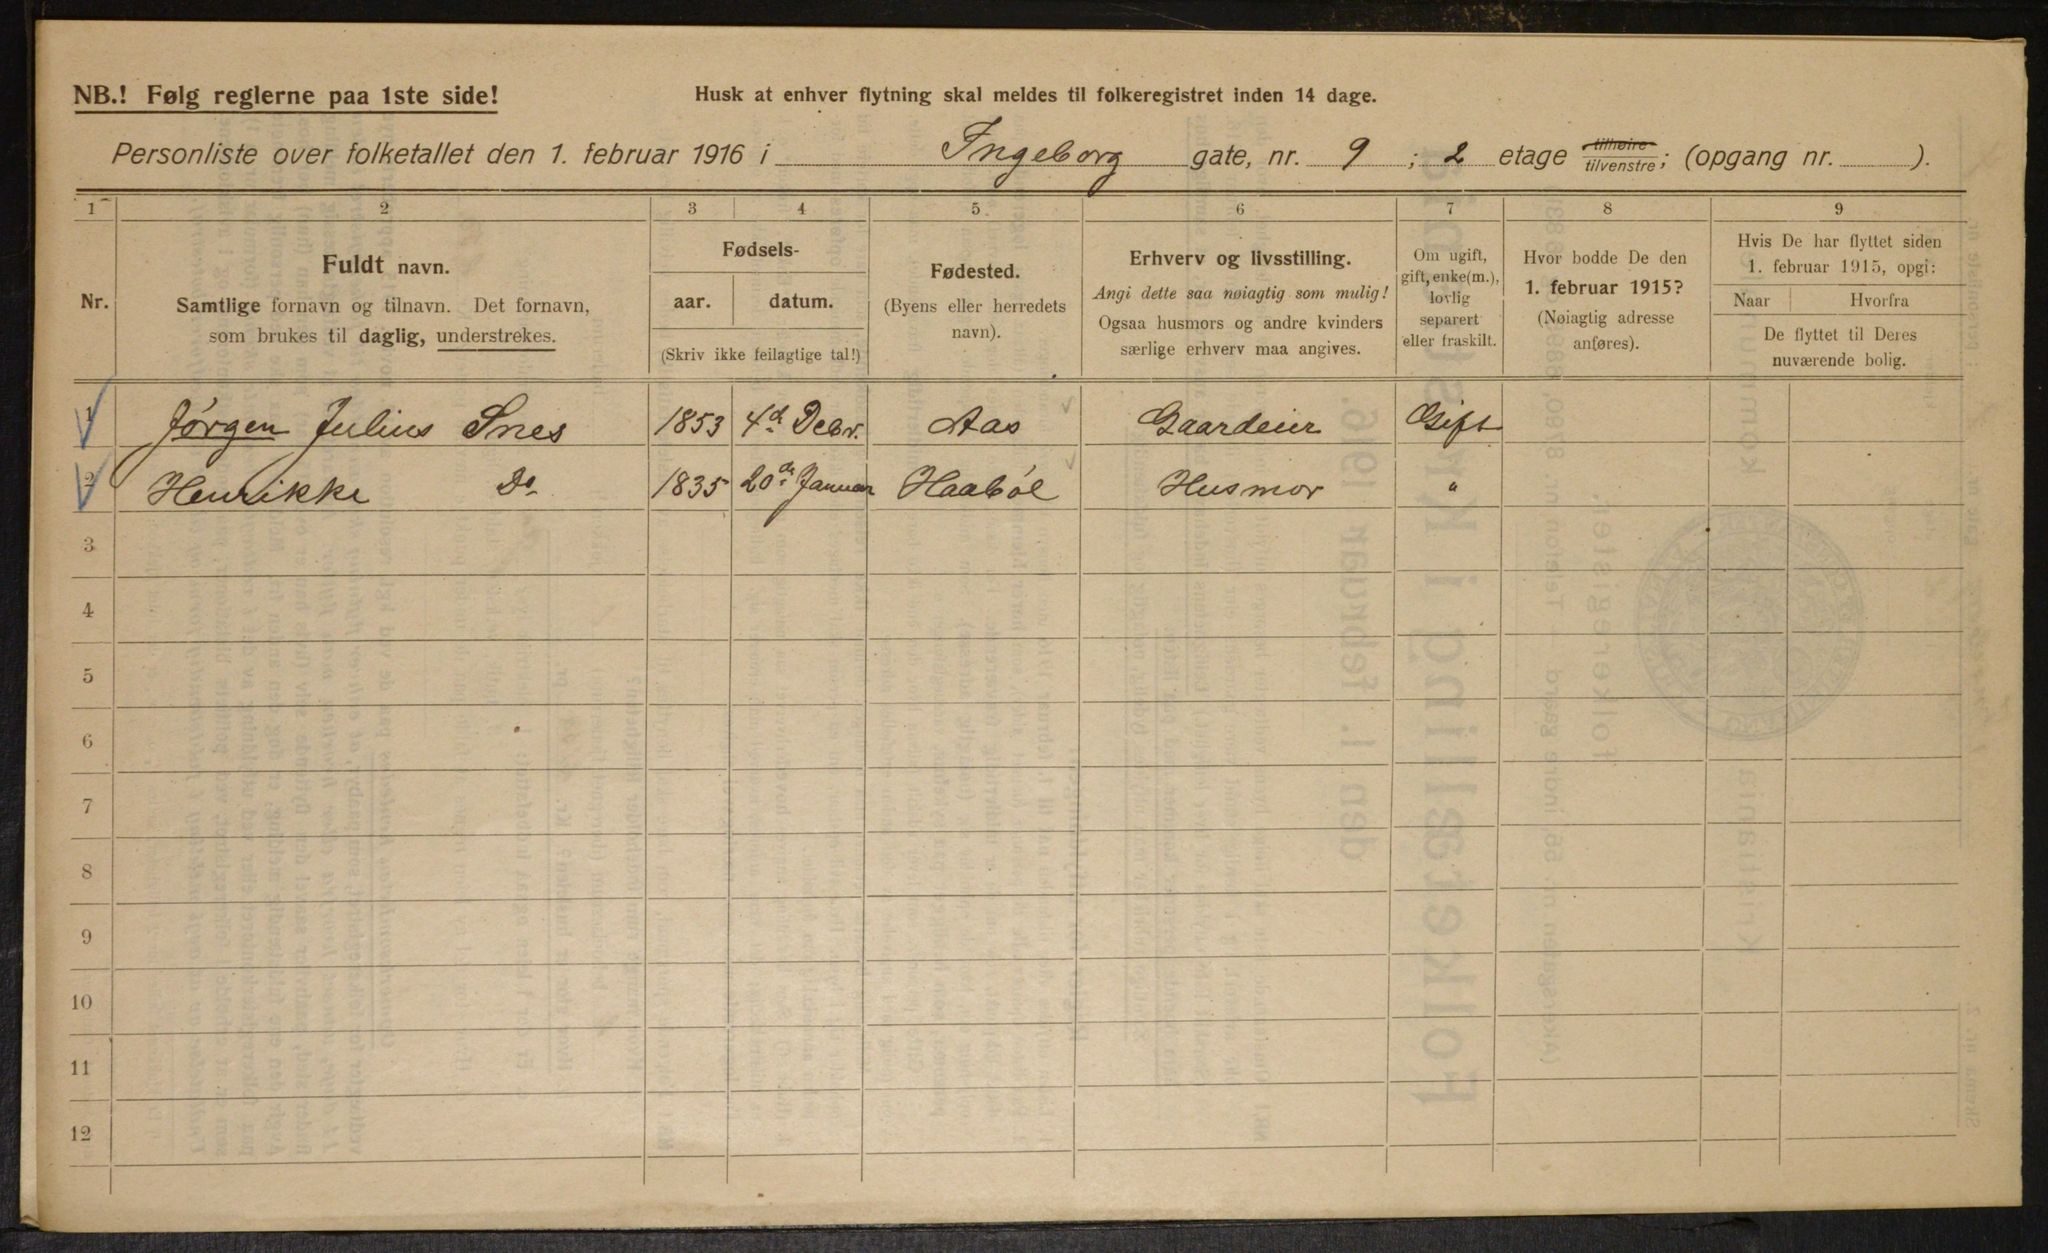 NB.! Følg reglerne paa 1ste side!
Husk at enhver flytning skal meldes til folkeregistret inden 14 dage.
Personliste over folketallet den 1. februar 1916 i Ingeborg gate, nr. 9 ; 2 etage tilhøire/tilvenstre; (opgang nr. ).
1 2 3 4 5 6 7 8 9
Nr.
Fuldt navn.
Samtlige fornavn og tilnavn. Det fornavn,
som brukes til daglig, understrekes.
Fødsels-
aar. datum.
(Skriv ikke feilagtige tal!)
Fødested.
(Byens eller herredets
navn).
Erhverv og livsstilling.
Angi dette saa nøiagtig som mulig!
Ogsaa husmors og andre kvinders
særlige erhverv maa angives.
Om ugift,
gift, enke(m.),
lovlig
separert
eller fraskilt.
Hvor bodde De den
1. februar 1915?
(Nøiagtig adresse
anføres).
Hvis De har flyttet siden
1. februar 1915, opgi:
Naar Hvorfra
De flyttet til Deres
nuværende bolig.
1 Jørgen Julius Snes 1853 4d Debr. Aas Gaardeier Gift
2 Henrikke Do 1835 20de Januar Haabøl Husmor "
3
4
5
6
7
8
9
10
11
12